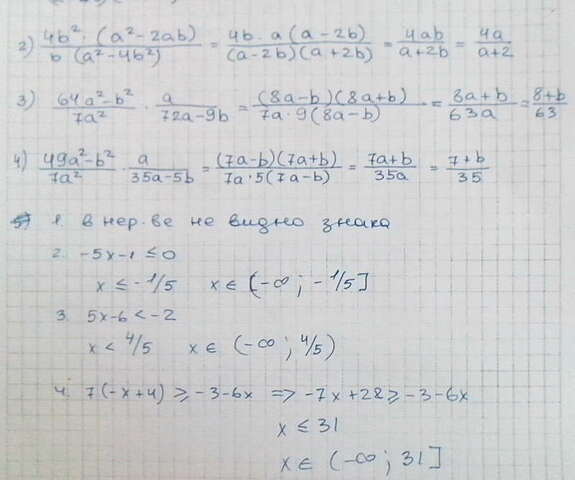 2) 4b² · (a² - 2ab) / b (a² - 4b²) = 4b · a (a - 2b) / (a - 2b)(a + 2b) = 4ab / a + 2b = 4a / a + 2
3) 64a² - b² / 7a² · a / 72a - 9b = (8a - b)(8a + b) / 7a · 9(8a - b) = 8a + b / 63a = 8 + b / 63
4) 49a² - b² / 7a² · a / 35a - 5b = (7a - b)(7a + b) / 7a · 5(7a - b) = 7a + b / 35a = 7 + b / 35
1. в нер-ве не видно знака
2. -5x - 1 ≤ 0
x ≤ -1/5 x ∈ (-∞ ; -1/5]
3. 5x - 6 < -2
x < 4/5 x ∈ (-∞ ; 4/5)
4. 7(-x + 4) ≥ -3 - 6x => -7x + 28 ≥ -3 - 6x
x ≤ 31
x ∈ (-∞ ; 31]